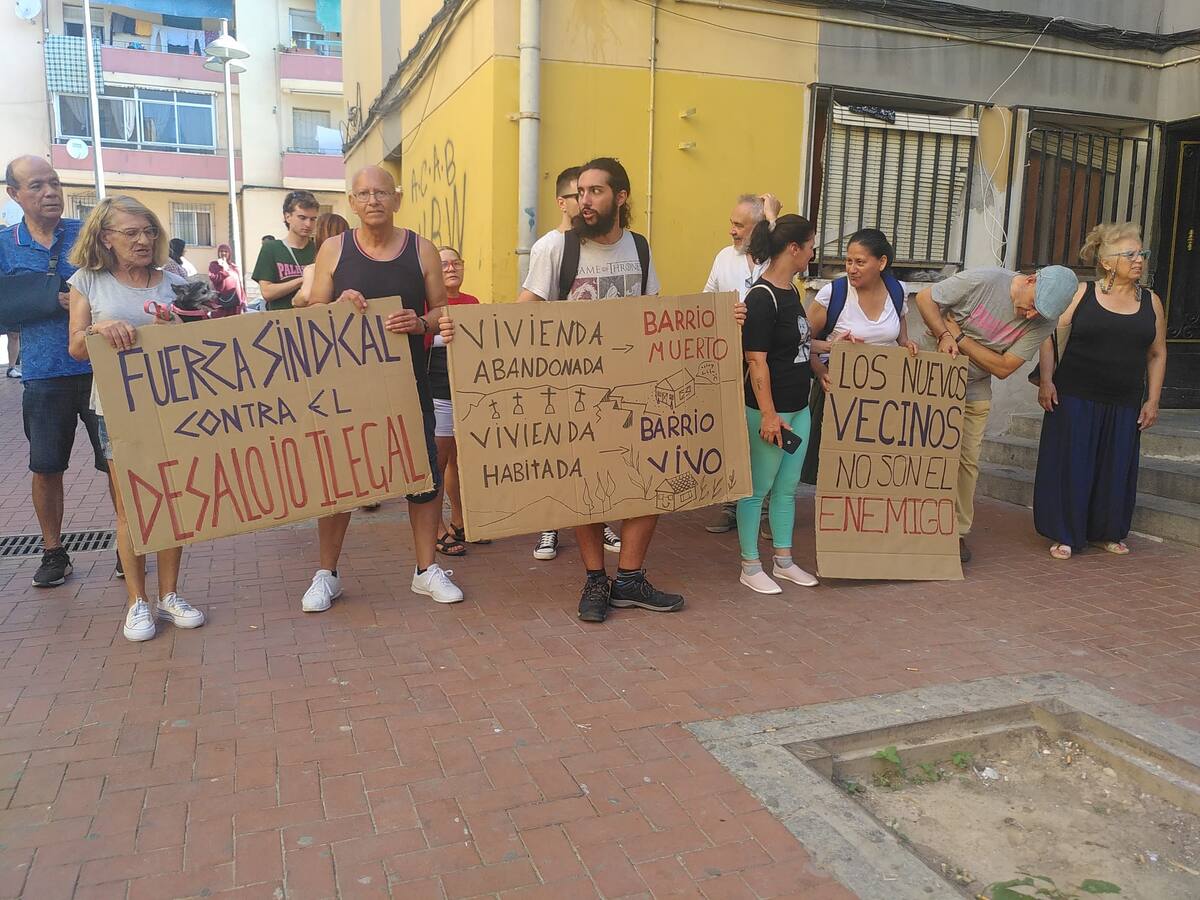 FUERZA SINDICAL
CONTRA EL
DESALOJO ILEGAL
VIVIENDA → BARRIO
ABANDONADA MUERTO
VIVIENDA BARRIO
HABITADA VIVO
LOS NUEVOS
VECINOS
NO SON EL
ENEMIGO
A.C.A.B
GAME OF THRONES